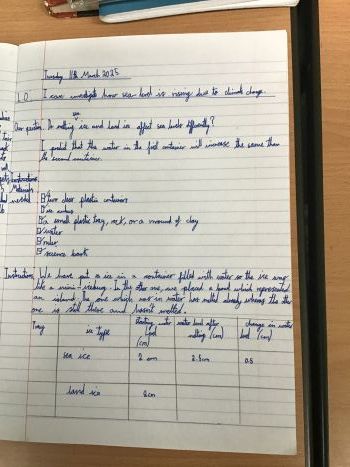 Tuesday 11th March 2025
L.O. I can investigate how sea level is rising due to climate change.
sea
Our question: Do melting ice and land ice affect sea levels differently?
I predict that the water in the first container will increase the same than
the second container.
two clear plastic containers
ice cubes
a small plastic tray, rock, or a mound of clay
water
ruler
science book
Instructions: We have put a ice in a container filled with water so the ice was
like a mini-iceberg. In the other one, we placed a land which represented
an island. The one which was in water has melted already whereas the other
one is still there and hasn't melted.
Tray ice type starting water level (cm) water level after melting (cm) change in water level (cm)
sea ice 2 cm 2.5cm 0.5
land ice 2cm